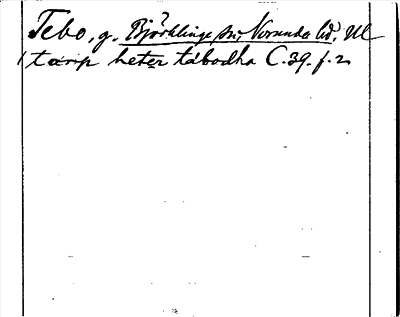 Tebo, g. Björklinge sn. Norunda hd. Ul
1 tarp heter täbodha C. 39. f. 2